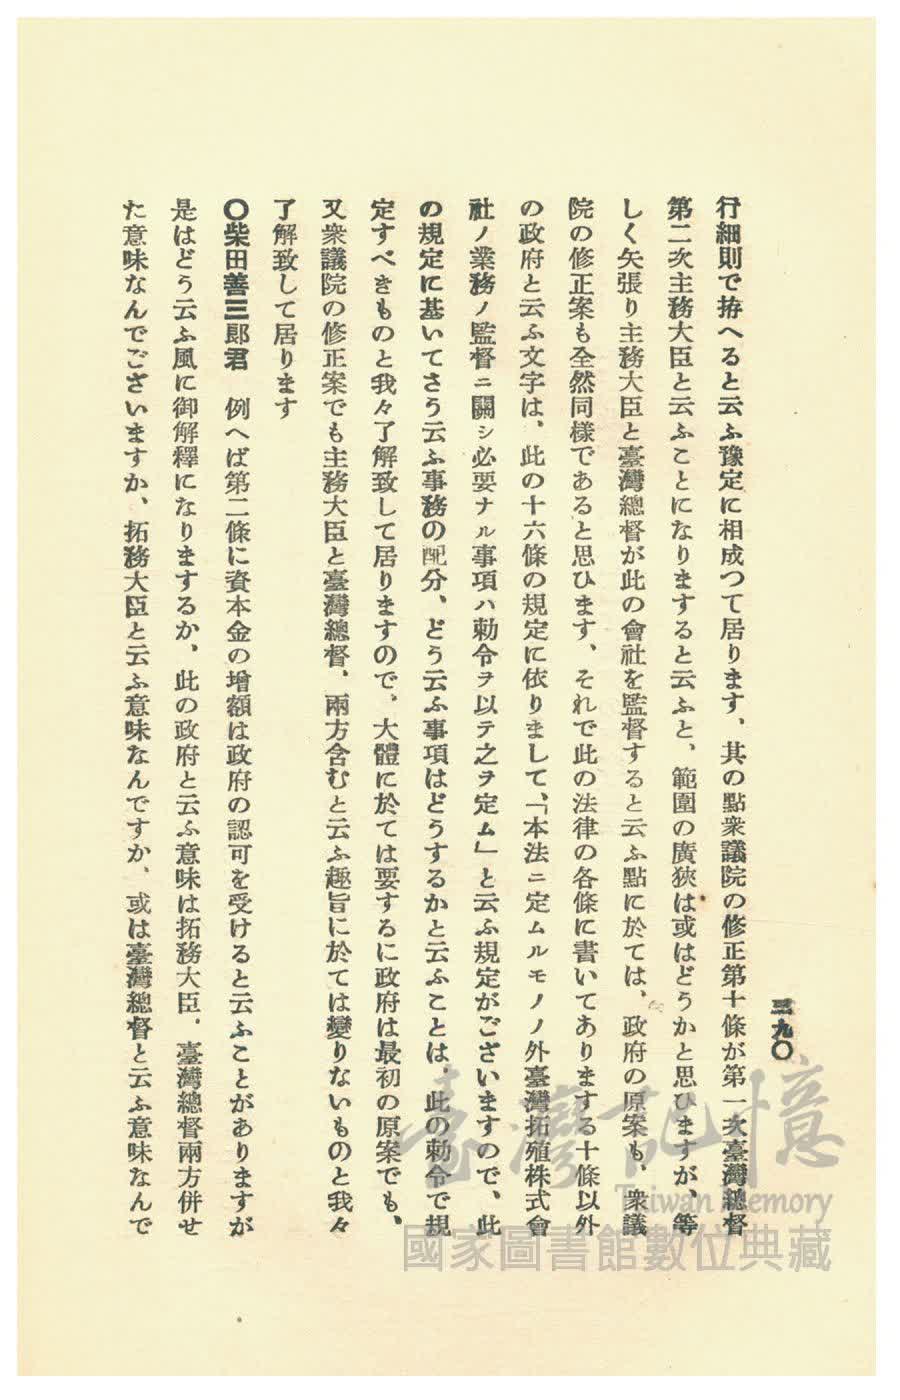 三九〇
行細則で拵へると云ふ豫定に相成つて居ります、其の點衆議院の修正第十條が第一次臺灣總督
第二次主務大臣と云ふことになりますると云ふと、範圍の廣狹は或はどうかと思ひますが、等
しく矢張り主務大臣と臺灣總督が此の會社を監督すると云ふ點に於ては、政府の原案も、衆議
院の修正案も全然同樣であると思ひます、それで此の法律の各條に書いてありまする十條以外
の政府と云ふ文字は、此の十六條の規定に依りまして、「本法ニ定ムルモノノ外臺灣拓殖株式會
社ノ業務ノ監督ニ關シ必要ナル事項ハ勅令ヲ以テ之ヲ定ム」と云ふ規定がございますので、此
の規定に基いてさう云ふ事務の配分、どう云ふ事項はどうするかと云ふことは、此の勅令で規
定すべきものと我々了解致して居りますので、大體に於ては要するに政府は最初の原案でも、
又衆議院の修正案でも主務大臣と臺灣總督、兩方含むと云ふ趣旨に於ては變りないものと我々
了解致して居ります
〇柴田善三郎君　例へば第二條に資本金の增額は政府の認可を受けると云ふことがありますが
是はどう云ふ風に御解釋になりまするか、此の政府と云ふ意味は拓務大臣、臺灣總督兩方併せ
た意味なんでございますか、拓務大臣と云ふ意味なんですか、或は臺灣總督と云ふ意味なんで
臺灣記憶
Taiwan Memory
國家圖書館數位典藏